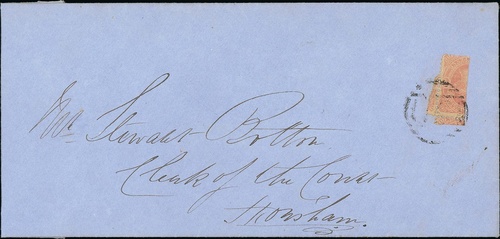 Mr. Stewart Bolton
Clerk of the Court
Horsham.